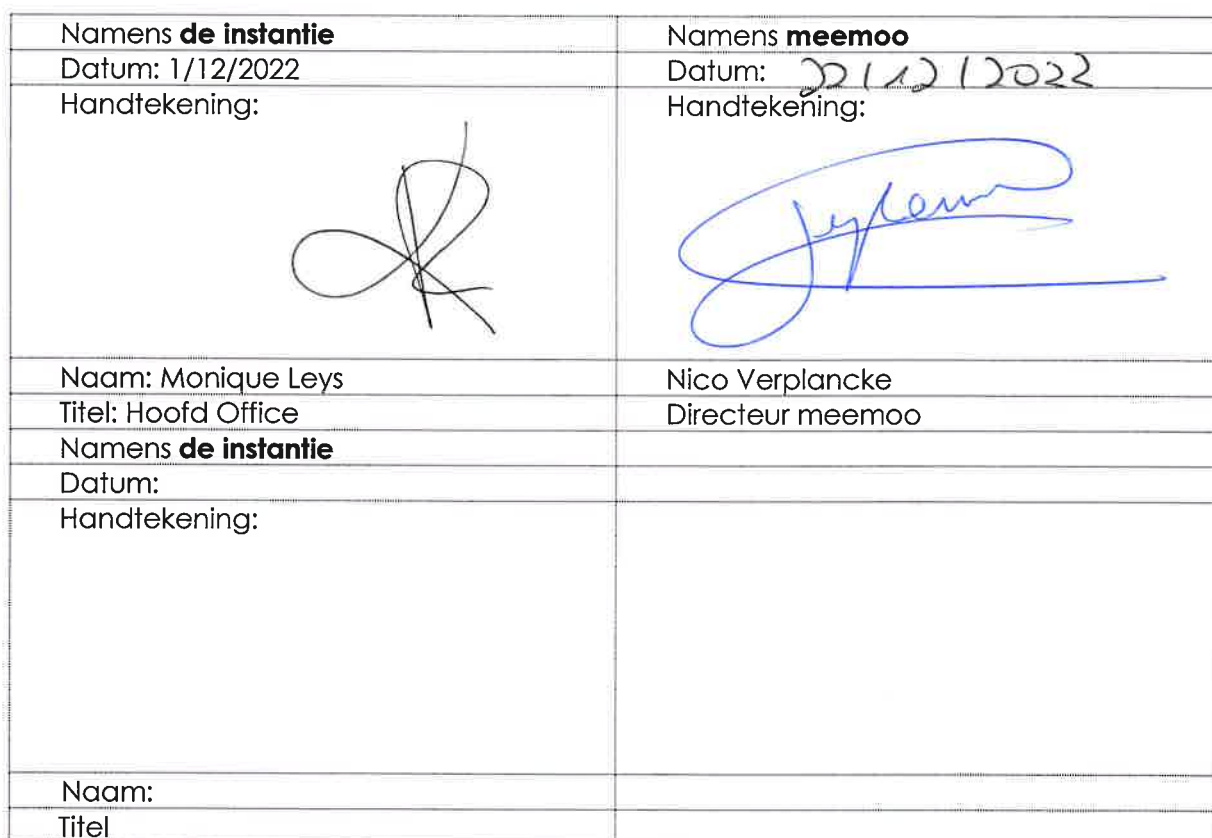 Namens de instantie
Namens meemoo
Datum: 1/12/2022
Datum: 22/12/2022
Handtekening:
Handtekening:
Naam: Monique Leys
Nico Verplancke
Titel: Hoofd Office
Directeur meemoo
Namens de instantie
Datum:
Handtekening:
Naam:
Titel